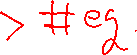 > #eg.